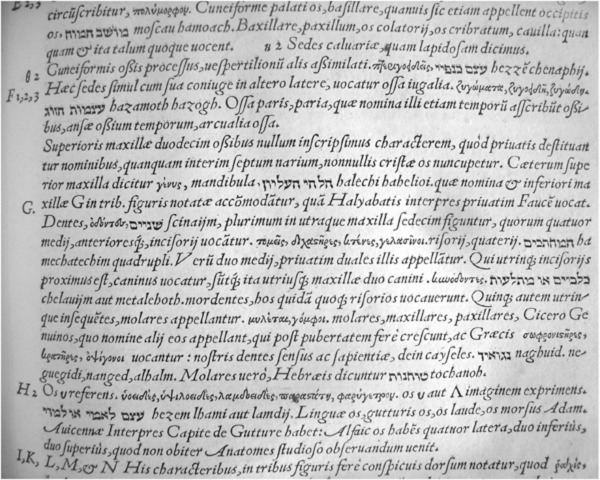 circũscribitur, πολύμορφον. Cuneiforme palati os, basillare, quanuis sic etiam appellent occipitis
os. מושב המוח moscau hamoach. Baxillare, paxillum, os colatorij, os cribratum, cauilla: quan
quam & ita talum quoque uocent. Sedes caluariæ, quam lapidosam dicimus.
Cuneiformis oßis processus, uespertilionũ alis aßimilati. עצם כנפיי hezẽ chenaphij.
F 1, 2, 3 Hæc sedes simul cum sua coniuge in altero latere, uocatur ossa iugalia. ζυγώματα,
עצמות הזוג hazamoth hazogh. Ossa paris, paria, quæ nomina illi etiam temporũ ascribũt oßi-
bus, ansæ oßium temporum, arcualia ossa.
Superioris maxillæ duodecim oßibus nullum inscripsimus characterem, quòd priuatis destituan
tur nominibus, quanquam interim septum narium, nonnullis cristæ os nuncupetur. Cæterum supe
rior maxilla dicitur γένυς, mandibula, הלחי העליון halechi hahelioi. quæ nomina & inferiori ma
G. xillæ G in trib. figuris notatæ accõmodãtur, quã Halyabatis interpres priuatim Faucẽ uocat.
Dentes, ὀδόντες, שניים scinaijm, plurimum in utraque maxilla sedecim figuntur, quorum quatuor
medij, anterioresq́;, incisorij uocãtur. τομεῖς, διχαστῆρες, κτένες, γελασῖνοι. risorij, quaterij. המחתכים ha
mechatechim quadrupli. Verũ duo medij, priuatim duales illi appellãtur. Qui utrinq́; incisorijs
proximus est, caninus uocatur, sũtq́; ita utriusq́; maxillæ duo canini. κυνόδοντες. כלביים או מתלעות
chelauijm aut metalehoth. mordentes, hos quidã quoq́; risorios uocauerunt. Quinq́; autem utrin-
que insequẽtes, molares appellantur. μυλῖται, γόμφοι. molares, maxillares, paxillares, Cicero Ge
nuinos, quo nomine alij eos appellant, qui post pubertatem ferè crescunt, ac Græcis σωφρονιστῆρες,
κραντῆρες, ὀψίγονοι uocantur: nostris dentes sensus ac sapientiæ, dein cayseles. נגואיד naghuid. ne-
guegidi, nanged, alhalm. Molares uerò, Hebræis dicuntur טוחנות tochanoh.
H 2 Os υ referens. ὑοειδὲς, ὑψιλοειδὲς, λαμδοειδὲς, φαρύγετρον. os υ aut Λ imaginem exprimens.
עצם לאמי או למדי hezem lhami aut lamdij. Linguæ os, gutturis os, os laude, os morsus Adam.
Auicennæ Interpres Capite de Gutture habet: Alfaic os habẽs quatuor latera, duo inferius,
duo superius, quod non obiter Anatomes studioso obseruandum uenit.
I, K, L, M, & N His characteribus, in tribus figuris ferè conspicuis dorsum notatur, quod ῥάχις,